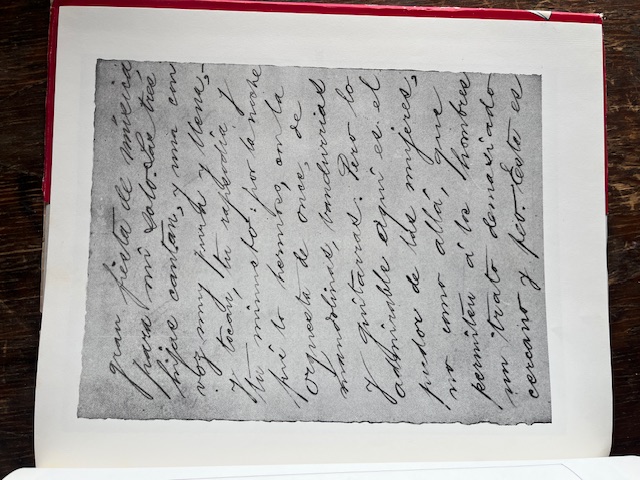 gran fiesta de música
para mí solo. Las tres
hijas cantan, y una con
voz muy pura y llena,
y tocan, tu rapsodia y
tu minueto: por la noche
fué lo hermoso, con la
orquesta de once, de
mandolinas, bandurrias
y guitarras. Pero lo
admirable aquí es el
pudor de las mujeres,
no como allá, que
permiten á los hombres
un trato demasiado
cercano y feo. Esta es